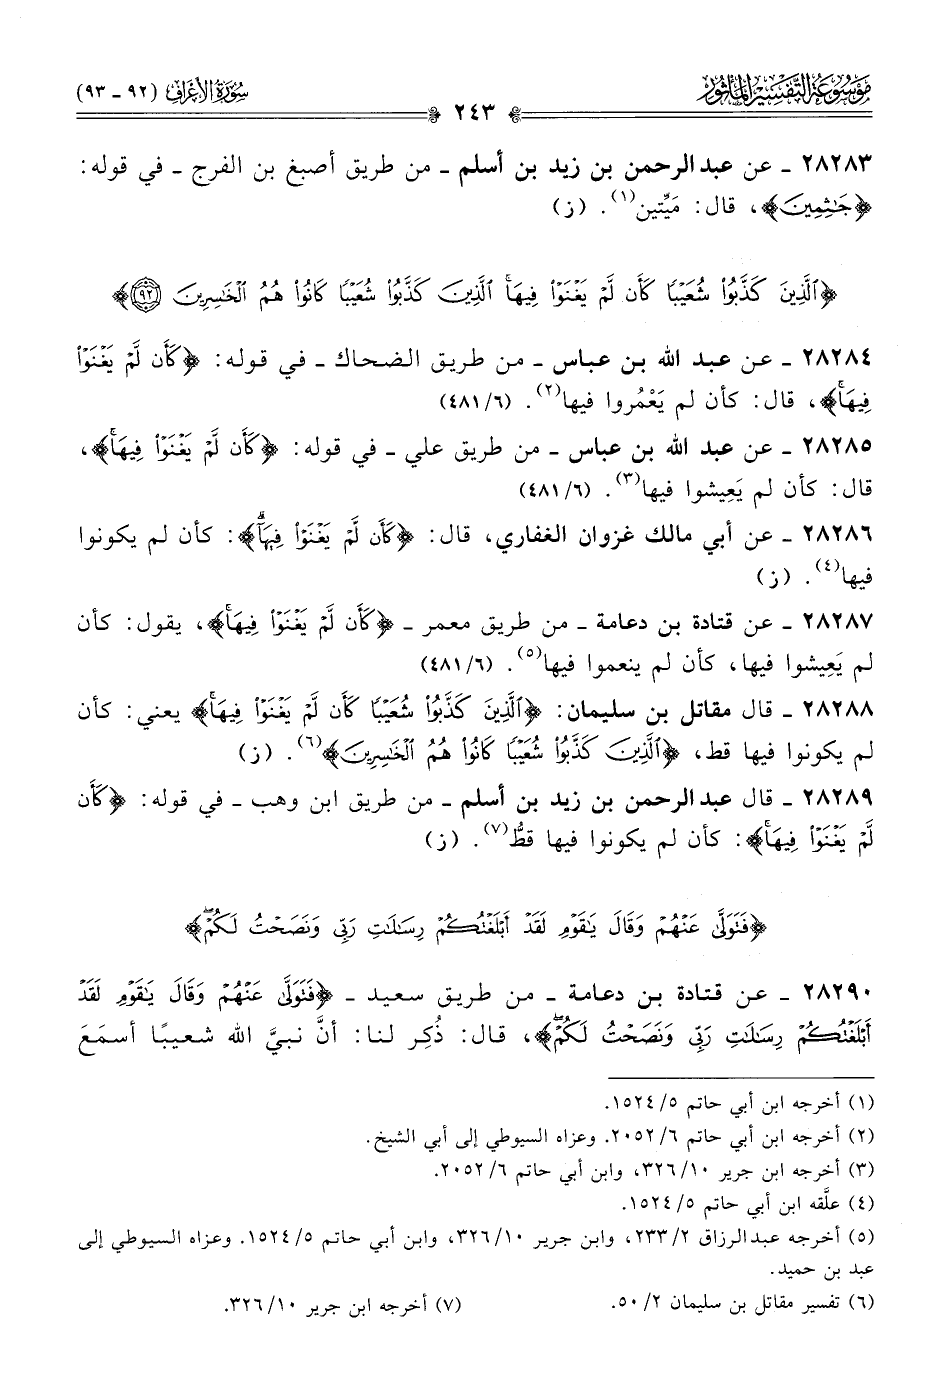 مَوْسُوعَة التَّفْسِيْر المَأْثُوْر
سُورَةُ الأَعْرَاف (٩٢ - ٩٣)
٢٤٣
٢٨٢٨٣ - عن عبد الرحمن بن زيد بن أسلم - من طريق أصبغ بن الفرج - في قوله:
﴿جَٰثِمِينَ﴾، قال: مَيِّتين(١). (ز)
﴿ٱلَّذِينَ كَذَّبُوا۟ شُعَيْبًا كَأَن لَّمْ يَغْنَوْا۟ فِيهَاۚ ٱلَّذِينَ كَذَّبُوا۟ شُعَيْبًا كَانُوا۟ هُمُ ٱلْخَٰسِرِينَ ٩٢﴾
٢٨٢٨٤ - عن عبد الله بن عباس - من طريق الضحاك - في قوله: ﴿كَأَن لَّمْ يَغْنَوْا۟
فِيهَاۚ﴾، قال: كأن لم يَعْمُروا فيها(٢). (٤٨١/٦)
٢٨٢٨٥ - عن عبد الله بن عباس - من طريق علي - في قوله: ﴿كَأَن لَّمْ يَغْنَوْا۟ فِيهَاۚ﴾،
قال: كأن لم يَعِيشوا فيها(٣). (٤٨١/٦)
٢٨٢٨٦ - عن أبي مالك غزوان الغفاري، قال: ﴿كَأَن لَّمْ يَغْنَوْا۟ فِيهَآۗ﴾: كأن لم يكونوا
فيها(٤). (ز)
٢٨٢٨٧ - عن قتادة بن دعامة - من طريق معمر - ﴿كَأَن لَّمْ يَغْنَوْا۟ فِيهَاۚ﴾، يقول: كأن
لم يَعِيشوا فيها، كأن لم ينعموا فيها(٥). (٤٨١/٦)
٢٨٢٨٨ - قال مقاتل بن سليمان: ﴿ٱلَّذِينَ كَذَّبُوا۟ شُعَيْبًا كَأَن لَّمْ يَغْنَوْا۟ فِيهَاۚ﴾ يعني: كأن
لم يكونوا فيها قط، ﴿ٱلَّذِينَ كَذَّبُوا۟ شُعَيْبًا كَانُوا۟ هُمُ ٱلْخَٰسِرِينَ﴾(٦). (ز)
٢٨٢٨٩ - قال عبد الرحمن بن زيد بن أسلم - من طريق ابن وهب - في قوله: ﴿كَأَن
لَّمْ يَغْنَوْا۟ فِيهَاۚ﴾: كأن لم يكونوا فيها قطُّ(٧). (ز)
﴿فَتَوَلَّىٰ عَنْهُمْ وَقَالَ يَٰقَوْمِ لَقَدْ أَبْلَغْتُكُمْ رِسَٰلَٰتِ رَبِّى وَنَصَحْتُ لَكُمْۖ﴾
٢٨٢٩٠ - عن قتادة بن دعامة - من طريق سعيد - ﴿فَتَوَلَّىٰ عَنْهُمْ وَقَالَ يَٰقَوْمِ لَقَدْ
أَبْلَغْتُكُمْ رِسَٰلَٰتِ رَبِّى وَنَصَحْتُ لَكُمْۖ﴾، قال: ذُكِر لنا: أنَّ نبيَّ الله شعيبًا أسمَعَ
(١) أخرجه ابن أبي حاتم ١٥٢٤/٥.
(٢) أخرجه ابن أبي حاتم ٢٠٥٢/٦. وعزاه السيوطي إلى أبي الشيخ.
(٣) أخرجه ابن جرير ٣٢٦/١٠، وابن أبي حاتم ٢٠٥٢/٦.
(٤) علَّقه ابن أبي حاتم ١٥٢٤/٥.
(٥) أخرجه عبدالرزاق ٢٣٣/٢، وابن جرير ٣٢٦/١٠، وابن أبي حاتم ١٥٢٤/٥. وعزاه السيوطي إلى
عبد بن حميد.
(٦) تفسير مقاتل بن سليمان ٥٠/٢. (٧) أخرجه ابن جرير ٣٢٦/١٠.